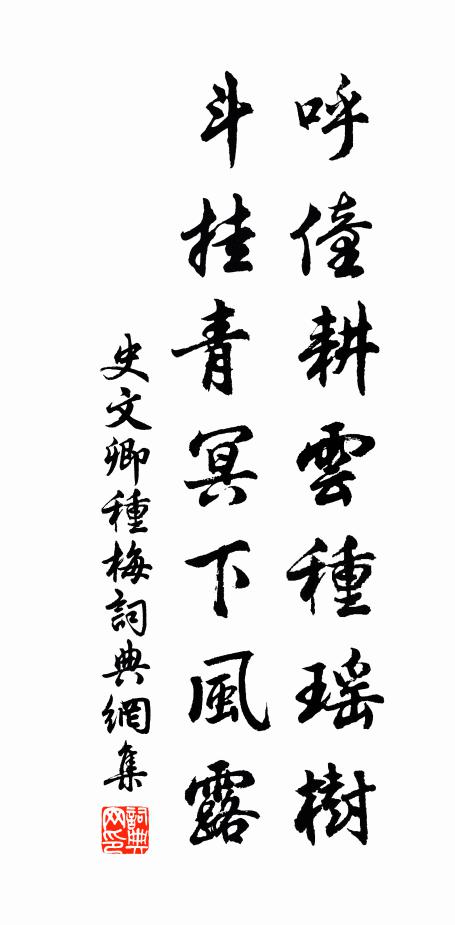 呼僮耕雲種瑶樹
斗挂青冥下風露
史文卿種梅詞典網集
詞典
网印